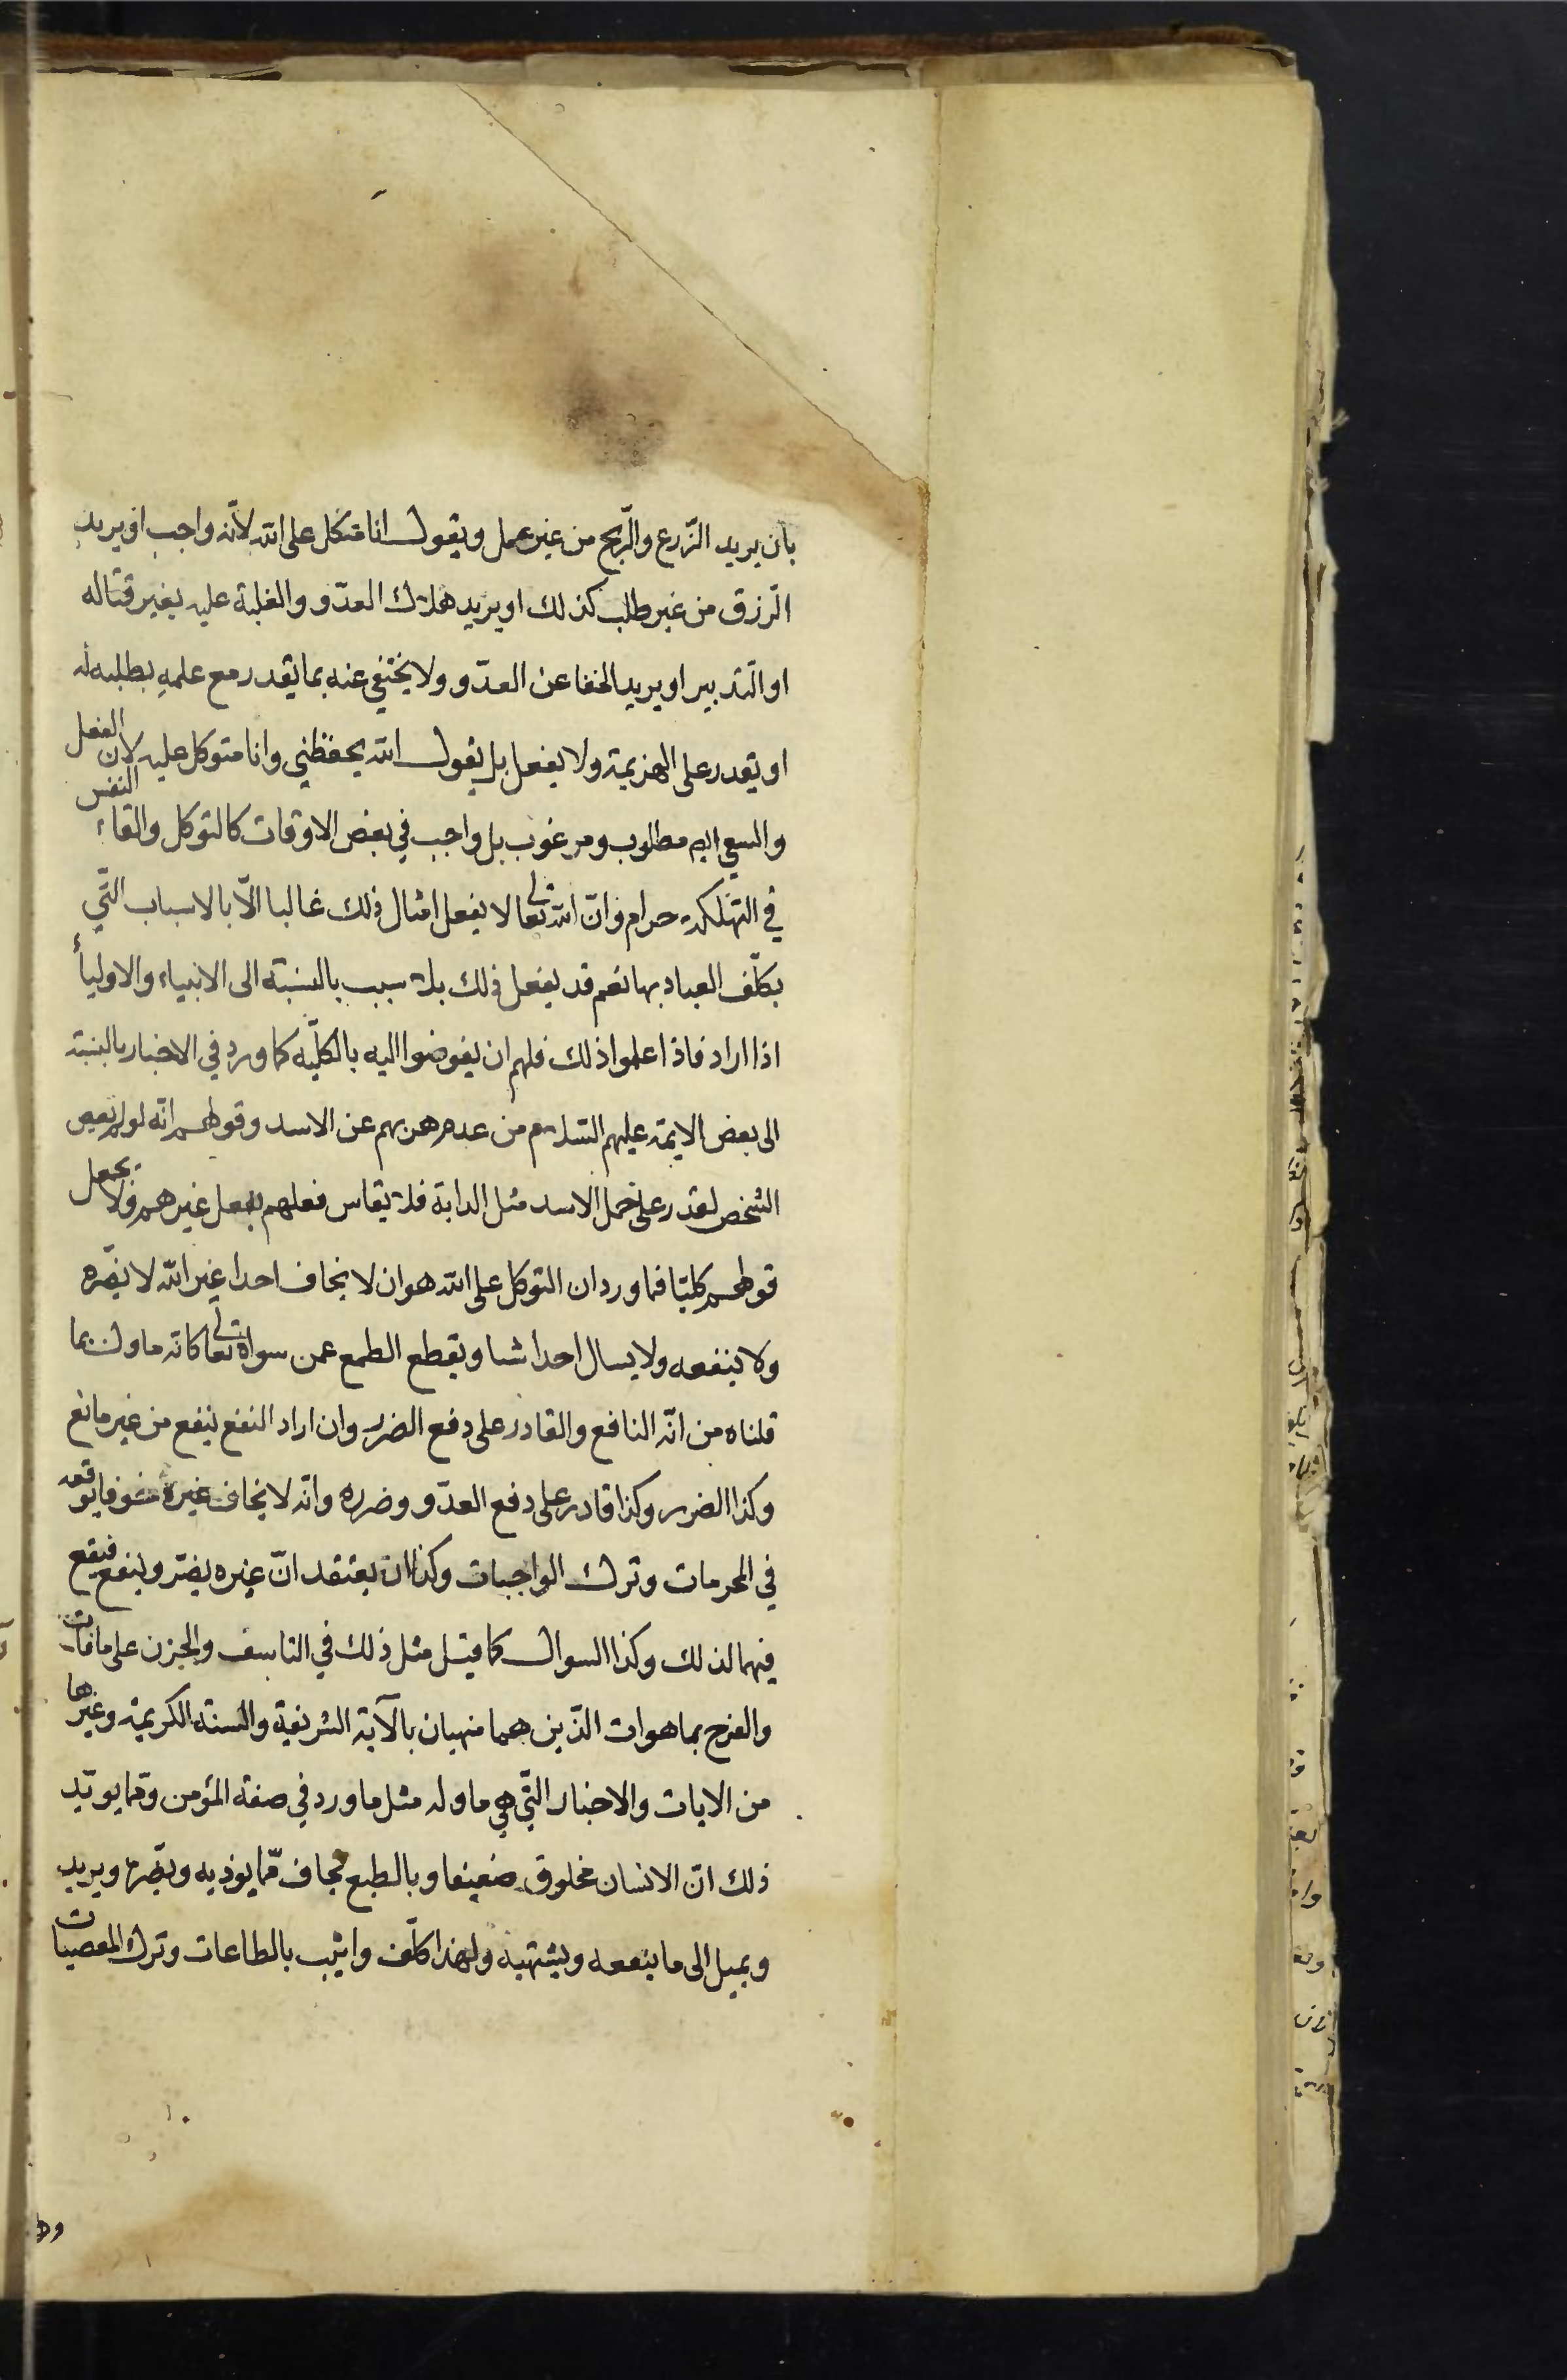 بان يريد الزّرع والرّبح من غير عمل ويقول انا متكل على الله لانّه واجب او يريد
الرّزق من غير طلب كذلك او يريد هلاك العدّو والغلبة عليه بغير قتاله
او التدبير او يريد الخفا عن العدّو ولا يختفي عنه بما يقدر مع علمه بطلبه له
او يقدر على الهزيمة ولا يفعل بل يقول الله يحفظني وانا متوكل عليه لان الفعل
والسعي اليه مطلوب ومرغوب بل واجب في بعض الاوقات كالتوكل والقاء النفس
في التهلكه حرام وانّ الله تعالى لا يفعل امثال ذلك غالبا الّا بالاسباب التّي
يكلّف العباد بها نعم قد يفعل ذلك بلا سبب بالنسبة الى الانبياء والاوليأ
اذا اراد فاذا علموا ذلك فلهم ان يفوضوا اليه بالكلّيه كما ورد في الاخبار بالنسبة
الى بعض الايمة عليهم السّلام من عدم هربهم عن الاسد وقولهم انّه لو لم يعص
الشخص لقدر على حمل الاسد مثل الدابة فلا يقاس فعلهم بفعل غيرهم فلا يجعل
قولهم كليّا فما ورد ان التوكل على الله هو ان لا يخاف احدا غير الله لا يضّره
ولا ينفعه ولا يسال احدا شيا ويقطع الطمع عمن سواه تعالى كانّه ماول بما
قلناه من انّه النافع والقادر على دفع الضرر وان اراد النفع ينفع من غير مانع
وكذا الضرر وكذا قادر على دفع العدّو وضرره وانّه لا يخاف غيره خوفا يوقعه
في المحرمات وترك الواجبات وكذا ان يعتقد انّ غيره يضّر وينفع فيقع
فيهما لذلك وكذا السوال كما قيل مثل ذلك في التاسف والحزن على ما فات
والفرح بما هو ات الذّين هما منهيان بالآية الشريفة والسنة الكريمة وغيرها
من الايات والاخبار التّي هي ماوله مثل ما ورد في صفة المؤمن وممّا يويّد
ذلك انّ الانسان مخلوق ضعيفا وبالطبع يخاف ممّا يوذيه ويضّره ويريد
ويميل الى ما ينفعه ويشتهيه ولهذا كلّف واثيب بالطاعات وترك المعصيات